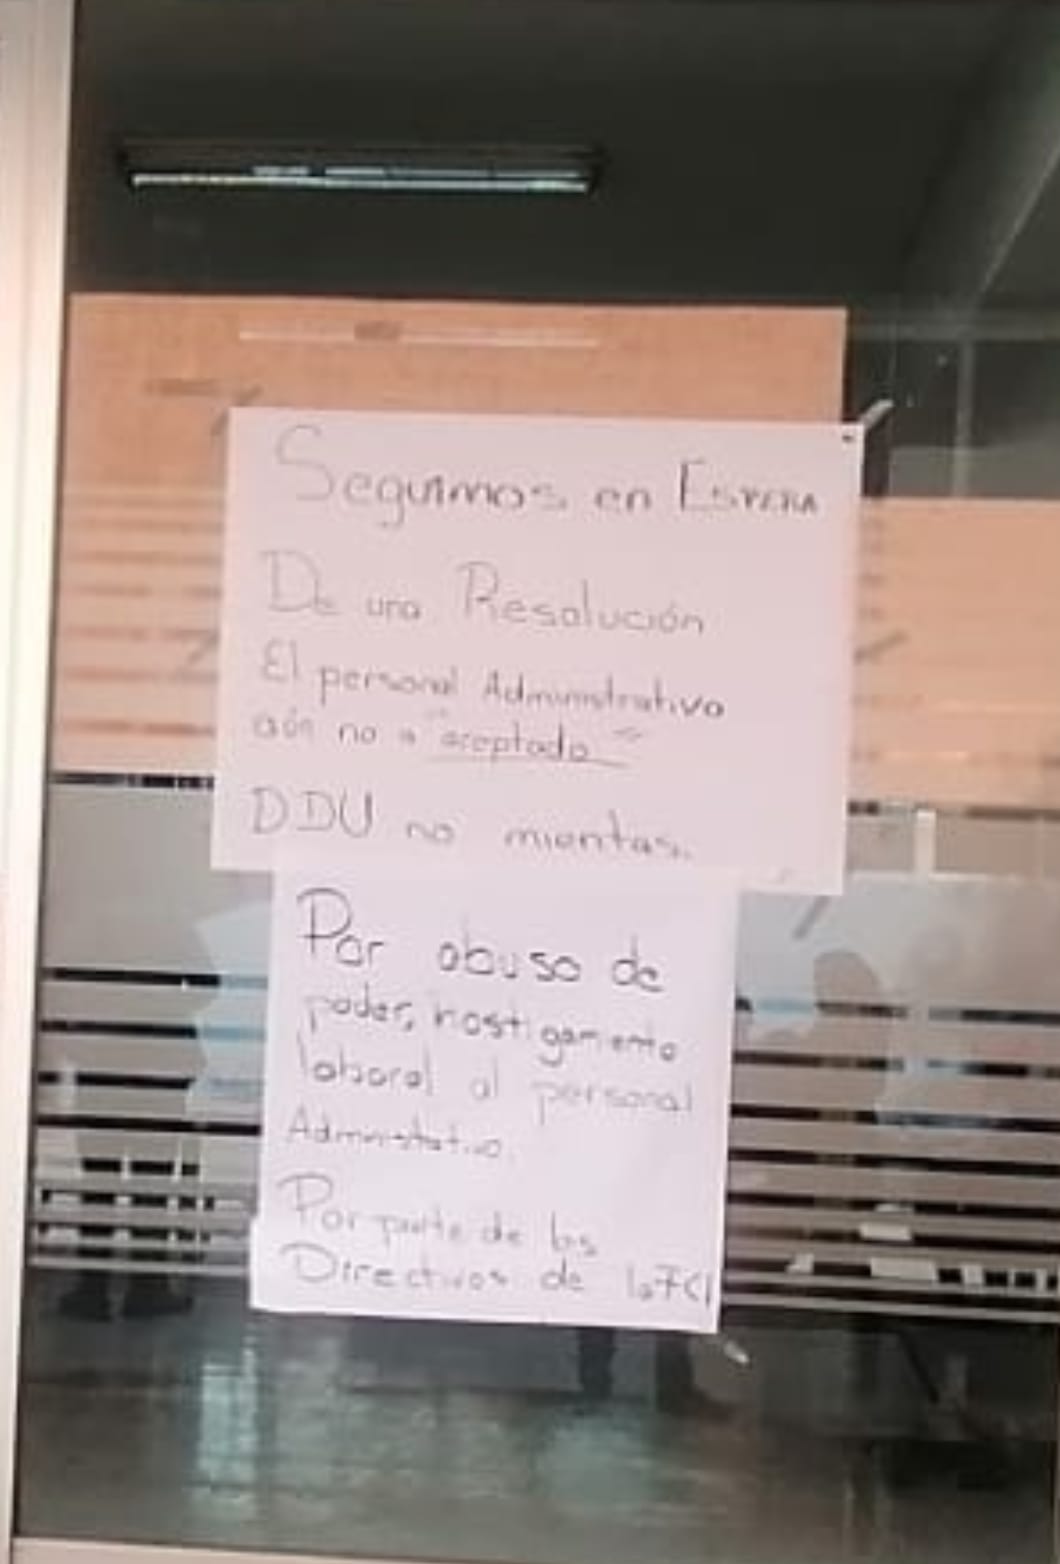 Seguimos en Espera
De una Resolución
El personal Administrativo
aún no a "aceptado"
DDU no mientas.
Por abuso de
poder, hostigamiento
laboral al personal
Administrativo.
Por parte de los
Directivos de la FCI